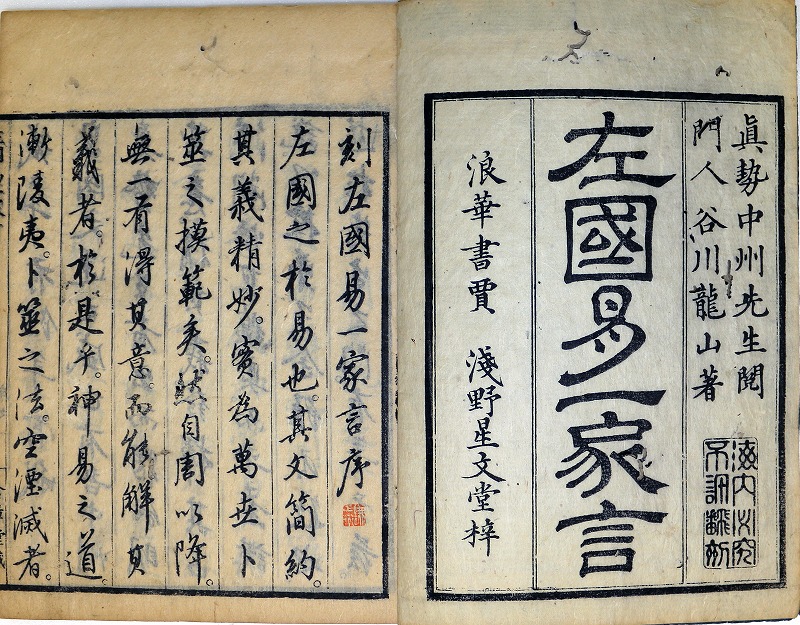 眞勢中州先生閱
門人 谷川龍山著
左國易一家言
浪華書賈 淺野星文堂梓
刻左國易一家言序
左國之於易也。其文簡約。
其義精妙。實為萬世卜
筮之摸範矣。然自周以降。
無一有得其意。而能解其
義者。於是乎。神易之道。
漸陵夷。卜筮之法。空湮滅者。